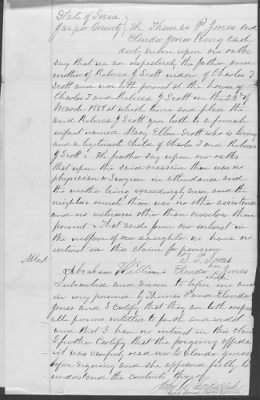 State of Iowa
Jasper County We Thomas P Jones and
Elender Jones being each
duly sworn upon our oaths
say that we are respectively the father and
mother of Rebecca J Scott widow of Charles T
Scott and was both present at the house of
Charles T and Rebecca J Scott on the 23rd of
March 185 at which time and place the
said Rebecca J Scott gave birth to a female
infant named Mary Ellen Scott who is living
and a legitimate child of Charles T and Rebecca
J Scott. We further say upon our oaths
that upon the said occasion there was no
physician or Surgeon in attendance and
the weather being exceedingly and the
neighbors there was no other assistance
and no witnesses other than ourselves then
present. That aside from our interest in
the welfare of our daughter we have no
interest in this claim for pension.
Attest T. P. Jones
Abraham Williams Elender Jones
Subscribed and Sworn to before me and
in my presence by Thomas P and Elender
Jones and I certify that they are both
persons entitled to full credit
and that I have no interest in this claim
I further certify that the foregoing affida
vit was carefully read over to Elender Jones
before Signing and she appeared fully to
understand the contents thereof